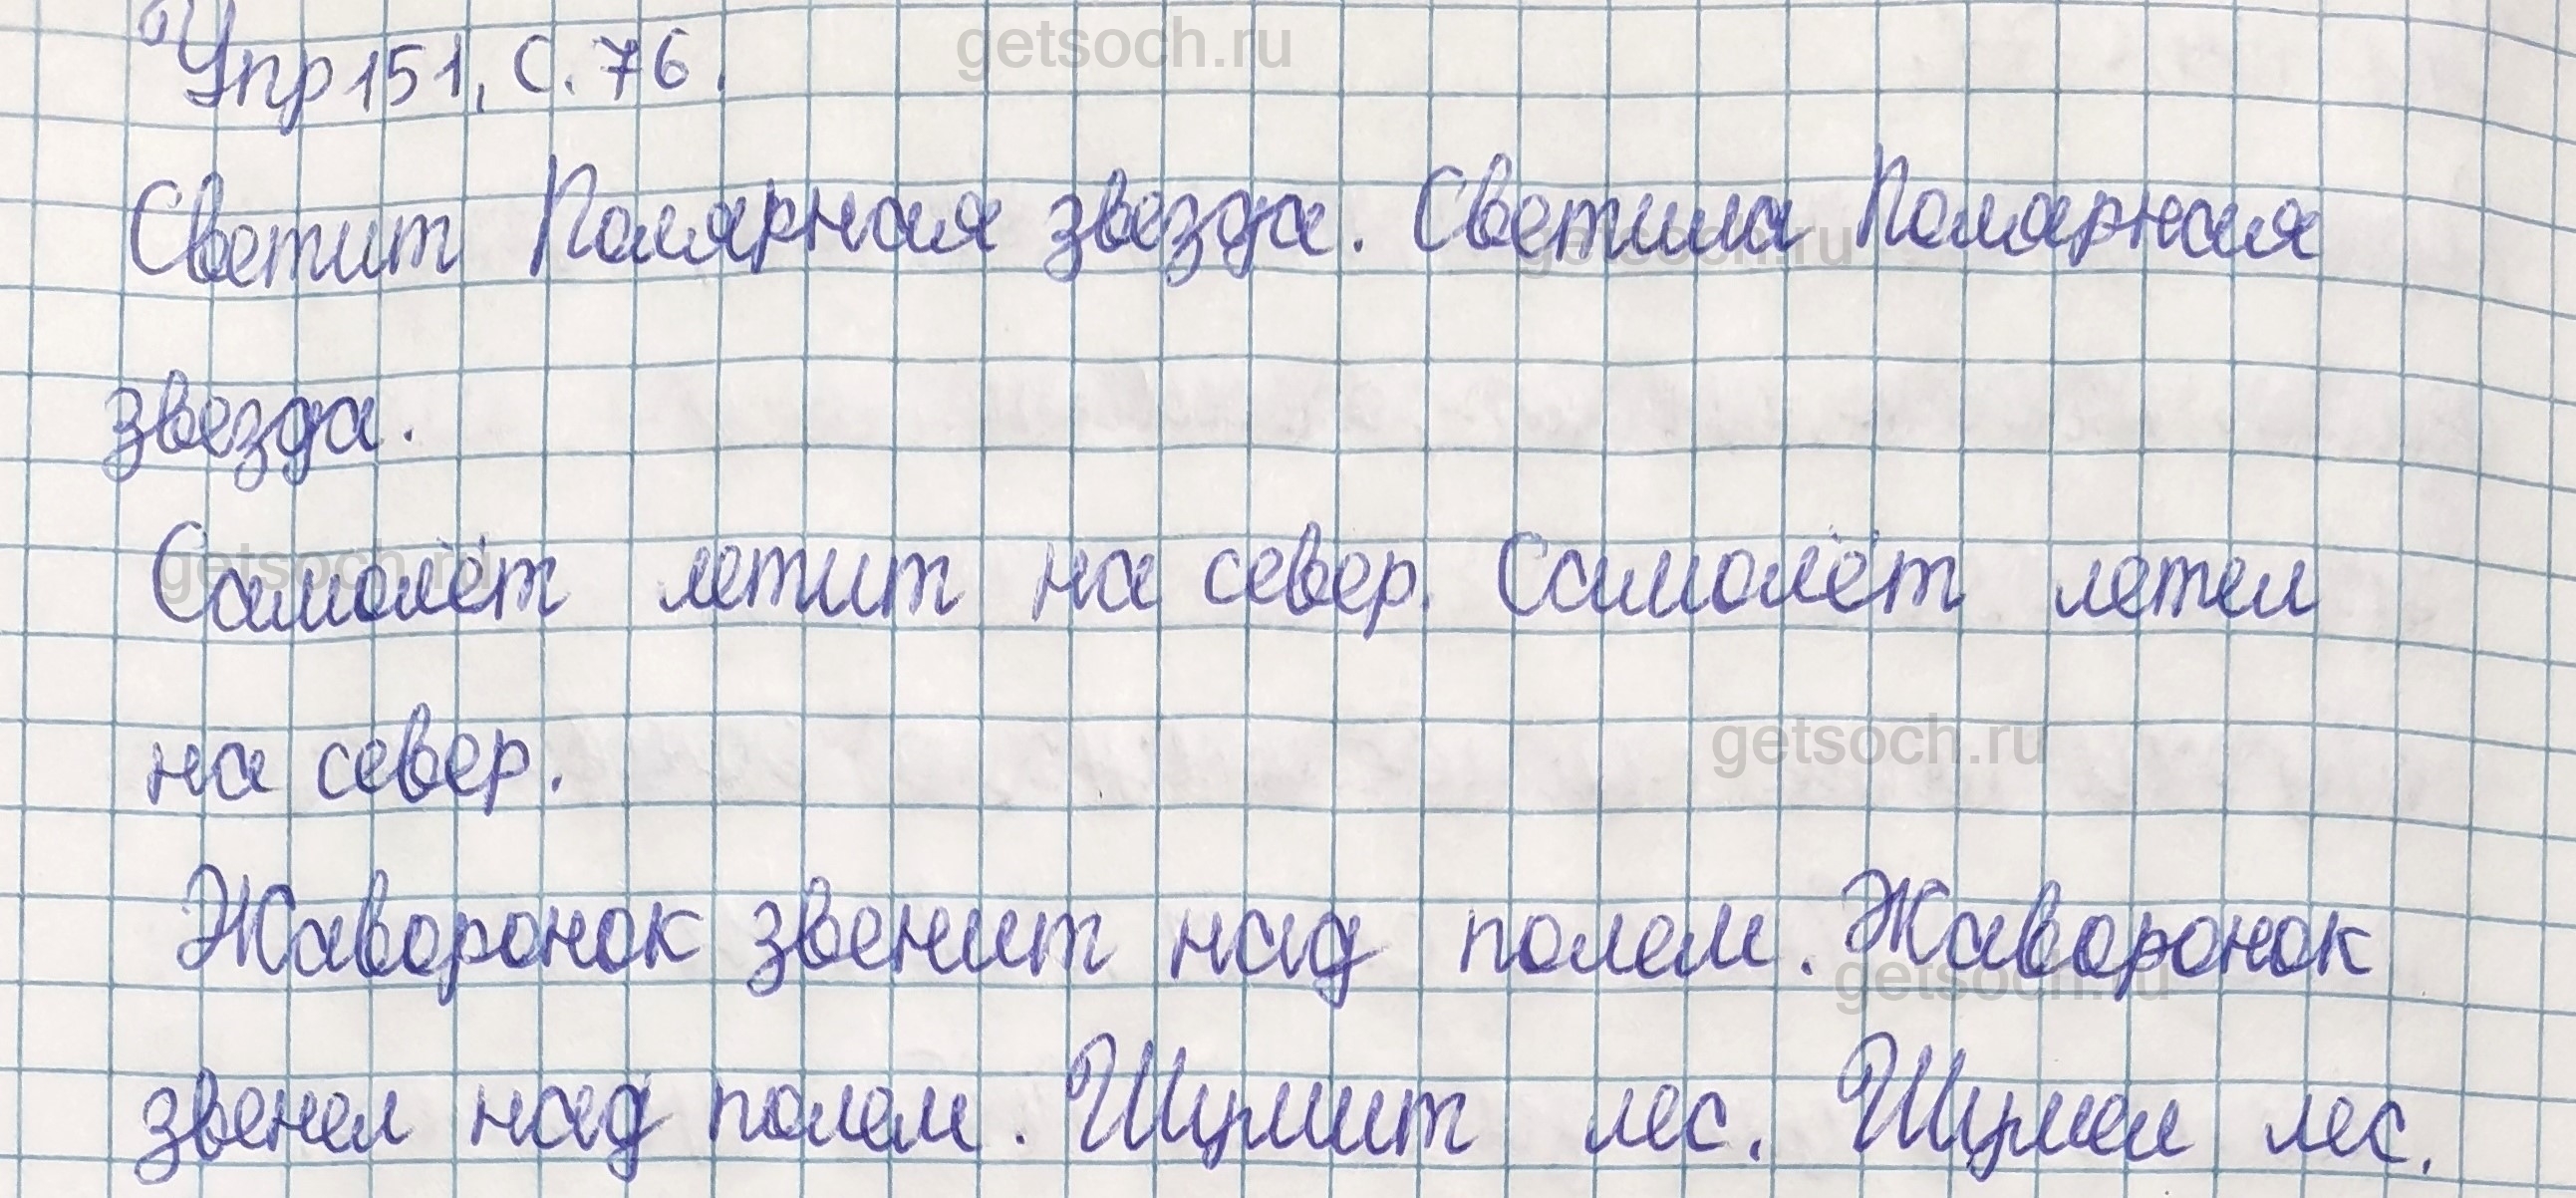 Упр 151, с. 76.
getsoch.ru
Светит Полярная звезда. Светила Полярная
getsoch.ru
звезда.
Самолёт летит на север. Самолёт летел
getsoch.ru
на север.
getsoch.ru
Жаворонок звенит над полем. Жаворонок
getsoch.ru
звенел над полем. Шумит лес. Шумел лес.